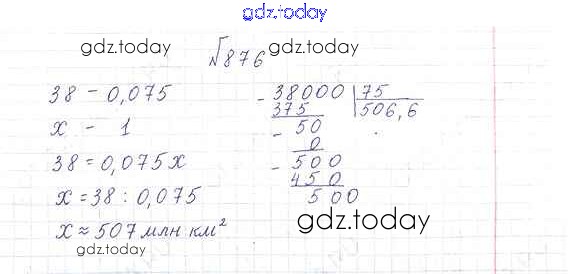 gdz.today
gdz.today №876 gdz.today
38 - 0,075
x - 1
38 = 0,075x
x = 38 : 0,075
x ≈ 507 млн км²
gdz.today
- 38000 | 75
375 506,6
- 50
0
- 500
450
500
gdz.today